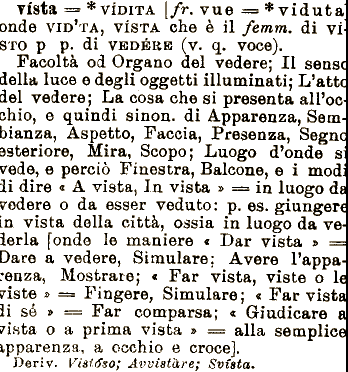 vísta = * VÍDITA [fr. vue = * viduta
onde VID'TA, VÍSTA che è il femm. di vi-
STO p p. di VEDÉRE (v. q. voce).
Facoltà od Organo del vedere; Il senso
della luce e degli oggetti illuminati; L'atto
del vedere; La cosa che si presenta all'oc-
chio, e quindi sinon. di Apparenza, Sem-
bianza, Aspetto, Faccia, Presenza, Segno
esteriore, Mira, Scopo; Luogo d'onde si
vede, e perciò Finestra, Balcone, e i modi
di dire « A vista, In vista » = in luogo da
vedere o da esser veduto: p. es. giungere
in vista della città, ossia in luogo da ve-
derla [onde le maniere « Dar vista » =
Dare a vedere, Simulare; Avere l'appa-
renza, Mostrare; « Far vista, viste o le
viste » = Fingere, Simulare; « Far vista
di sé » = Far comparsa; « Giudicare a
vista o a prima vista » = alla semplice
apparenza, a occhio e croce].
Deriv. Vistóso; Avvistàre; Svísta.